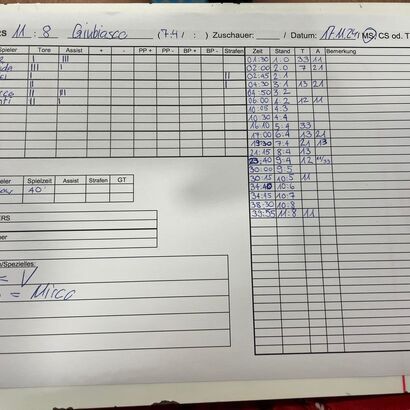 RS 11 : 8 Giubiasco (7:4 / : ) Zuschauer: / Datum: 17.11.24 MS CS od. T
Spieler Tore Assist + - PP + PP - BP + BP - Strafen
Zeit Stand T A Bemerkung
01:30 1:0 33 11
02:00 2:0 7 21
02:45 2:1
04:30 3:1 13 21
04:50 3:2
06:00 4:2 12 11
10:05 4:3
10:30 4:4
16:10 5:4 33
17:00 6:4 13 21
19:30 7:4 21 13
21:15 8:4 13
23:40 9:4 12
30:00 9:5
30:15 10:5 11
34:40 10:6
34:45 10:7
38:30 10:8
39:55 11:8 11
Spieler Spielzeit Assist Strafen GT
40'
ERS
ner
n/Spezielles:
= V
= Mirco